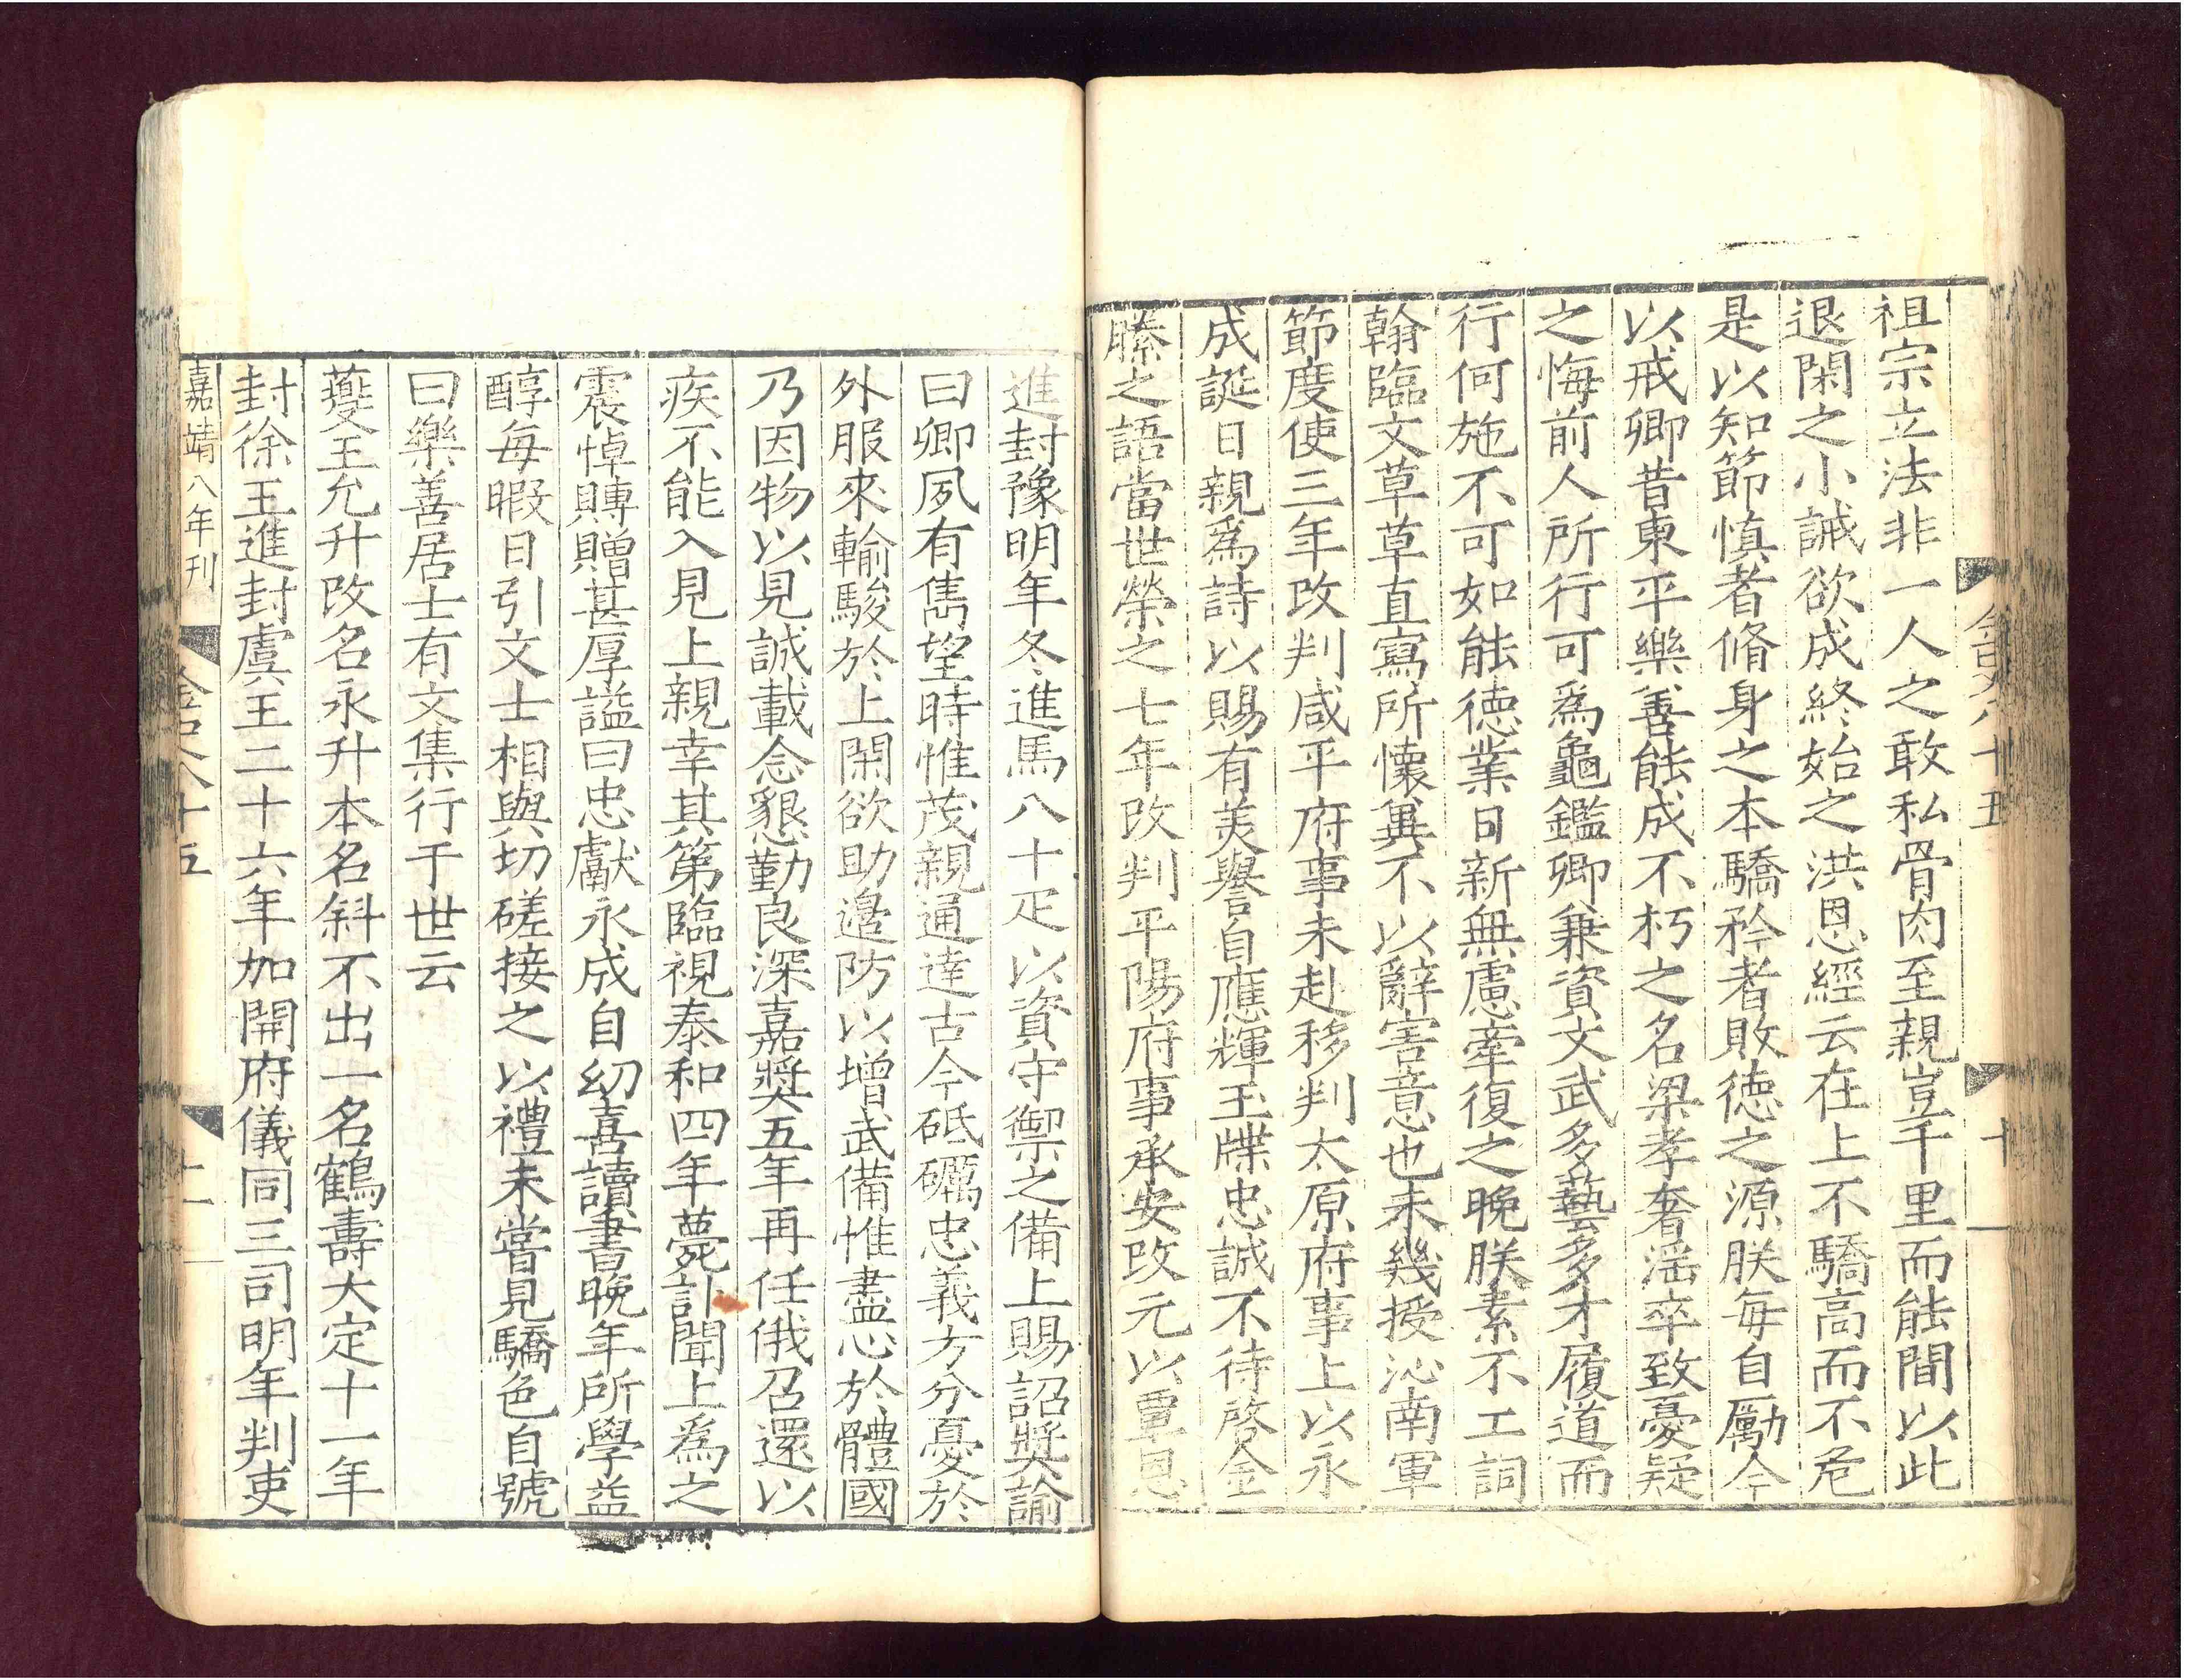 金史八十五
十
祖宗立法非一人之敢私骨肉至親豈千里而能間以此
退閑之小誡欲成終始之洪恩經云在上不驕高而不危
是以知節慎者脩身之本驕矜者敗徳之源朕每自勵今
以戒卿昔東平樂善能成不朽之名梁孝奢滛卒致憂疑
之悔前人所行可爲龜鑑卿兼資文武多藝多才履道而
行何施不可如能徳業日新無慮牽復之晚朕素不工詞
翰臨文草草直寫所懷兾不以辭害意也未幾授沁南軍
節度使三年改判咸平府事未赴移判太原府事上以永
成誕日親爲詩以賜有美譽自應輝玉牒忠誠不待啓金
縢之語當世榮之七年改判平陽府事承安改元以覃恩
進封豫明年冬進馬八十疋以資守禦之備上賜詔奬諭
曰卿夙有雋望時惟茂親通達古今砥礪忠義方分憂於
外服來輸駿於上閑欲助邉防以增武備惟盡心於體國
乃因物以見誠載念懇勤良深嘉奬五年再任俄召還以
疾不能入見上親幸其第臨視泰和四年薨訃聞上爲之
震悼賻贈甚厚謚曰忠獻永成自幼喜讀書晚年所學益
醇每暇日引文士相與切磋接之以禮未嘗見驕色自號
曰樂善居士有文集行于世云
夔王允升改名永升本名斜不出一名鶴壽大定十一年
封徐王進封虞王二十六年加開府儀同三司明年判吏
嘉靖八年刊
金史八十五
十一